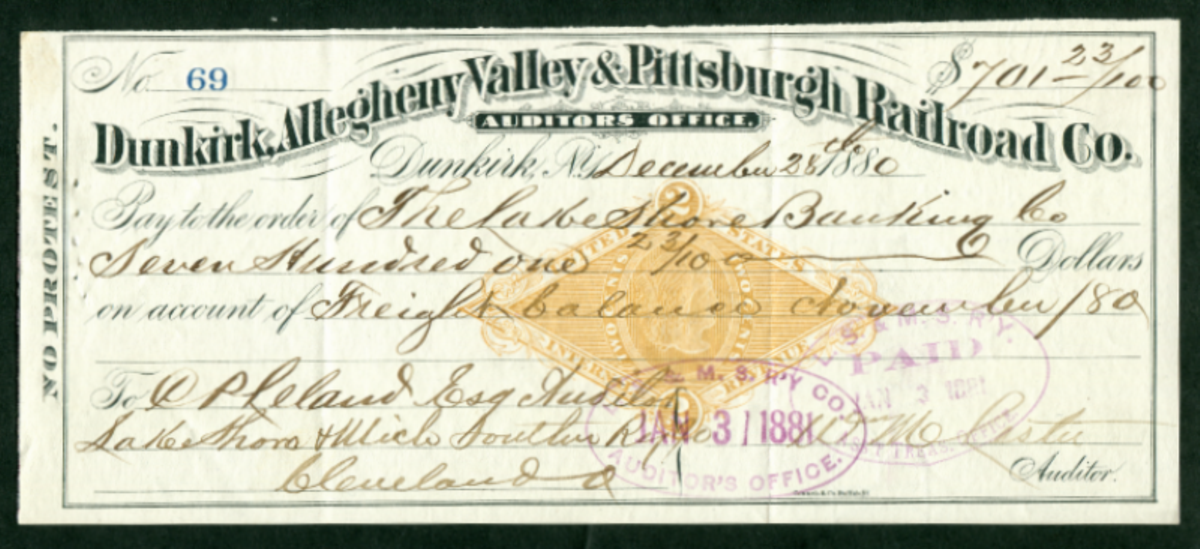 No. 69
$701 23/100
Dunkirk, Allegheny Valley & Pittsburgh Railroad Co.
AUDITORS OFFICE.
Dunkirk, N.Y. December 28th 1880
Pay to the order of The Lake Shore Banking Co
Seven Hundred one 23/100 Dollars
on account of Freight balance November /80
To C P Leland Esq Auditor
Lake Shore & Mich Southn Ry Co
Cleveland O
Auditor.
NO PROTEST.
2
UNITED STATES
INTERNAL REVENUE
L. S. & M. S. R'Y CO.
JAN 3 1881
AUDITOR'S OFFICE.
L. S. & M. S. R'Y.
PAID
JAN 3 1881